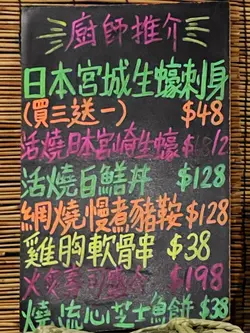 廚師推介
日本宮城生蠔刺身
(買三送一) $48
活燒日本宮崎生蠔 $48/2
活燒白鱔丼 $128
網燒慢煮豬鞍 $128
雞胸軟骨串 $38
火炙壽司 $198
燒流心芝士魚餅 $38